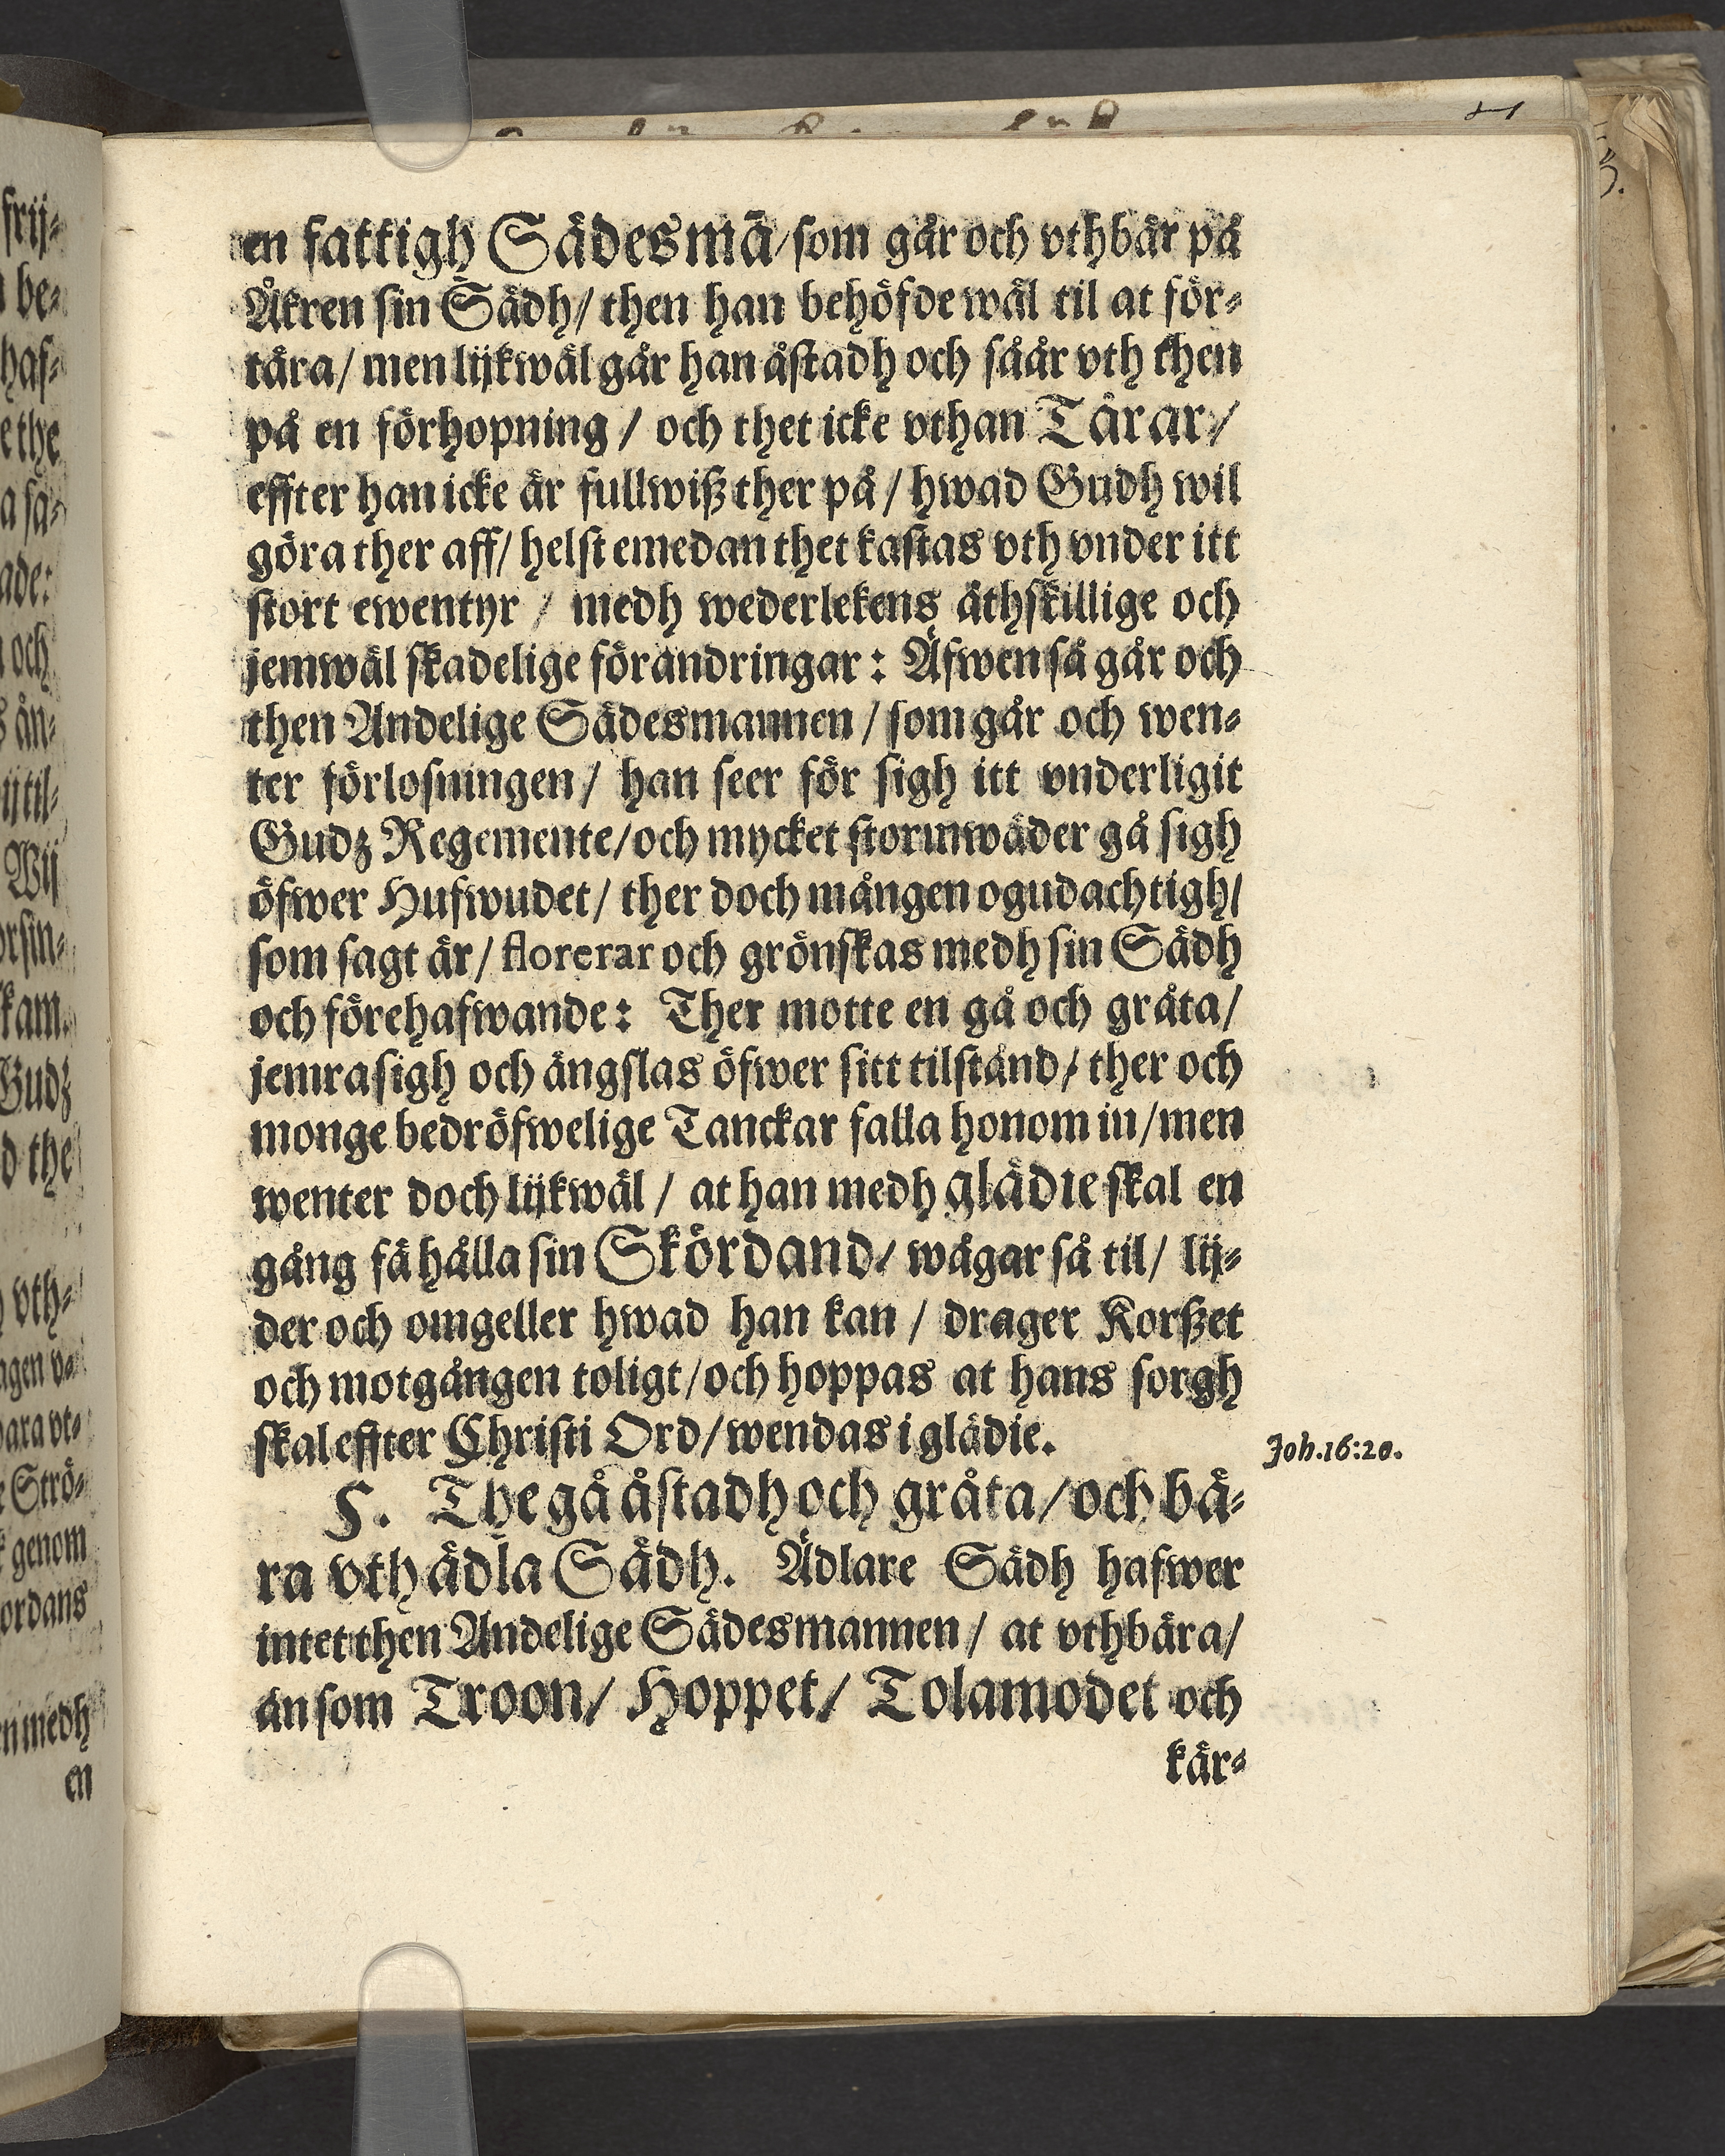 en fattigh Sädesmā/som går och vthbär på
Åkren sin Sädh/ then han behöfde wäl til at för-
tära/ men lijkwäl går han åstadh och såår vth then
på en förhopning / och thet icke vthan Tårar/
effter han icke är fullwiß ther på / hwad Gudh wil
göra ther aff/ helst emedan thet kastas vth vnder itt
stort ewentyr / medh wederlekens åthskillige och
jemwäl skadelige förandringar: Äfwen så går och
then Andelige Sädesmannen / som går och wen-
ter förlosningen/ han seer för sigh itt vnderligit
Gudz Regemente/och mycket stormwäder gå sigh
öfwer Hufwudet/ ther doch mången ogudachtigh/
som sagt är/ florerar och grönskas medh sin Sädh
och förehafwande: Ther motte en gå och gråta/
jemra sigh och ängslas öfwer sitt tilstånd/ ther och
monge bedröfwelige Tanckar falla honom in/men
wenter doch lijkwäl / at han medh glädie skal en
gång få hålla sin Skördand/ wågar så til/ lij-
der och omgeller hwad han kan / drager Korßet
och motgången toligt/och hoppas at hans sorgh
skal effter Christi Ord/wendas i glädie.
Joh.16:20.
§. The gå åstadh och gråta/och bä-
ra vth ädla Sädh. Ädlare Sädh hafwer
intet then Andelige Sädesmannen/ at vthbära/
än som Troon/ Hoppet/ Tolamodet och
kär-